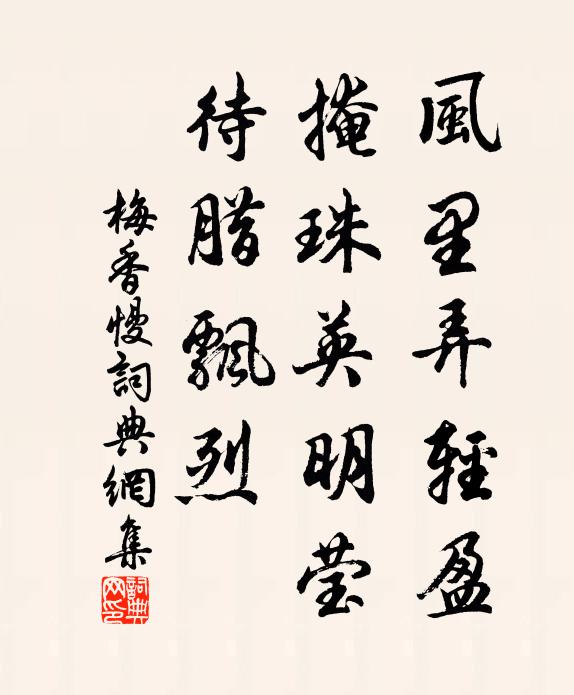 風里弄輕盈
掩珠英明莹
待腊飄烈
梅香慢詞典網集
詞典網印